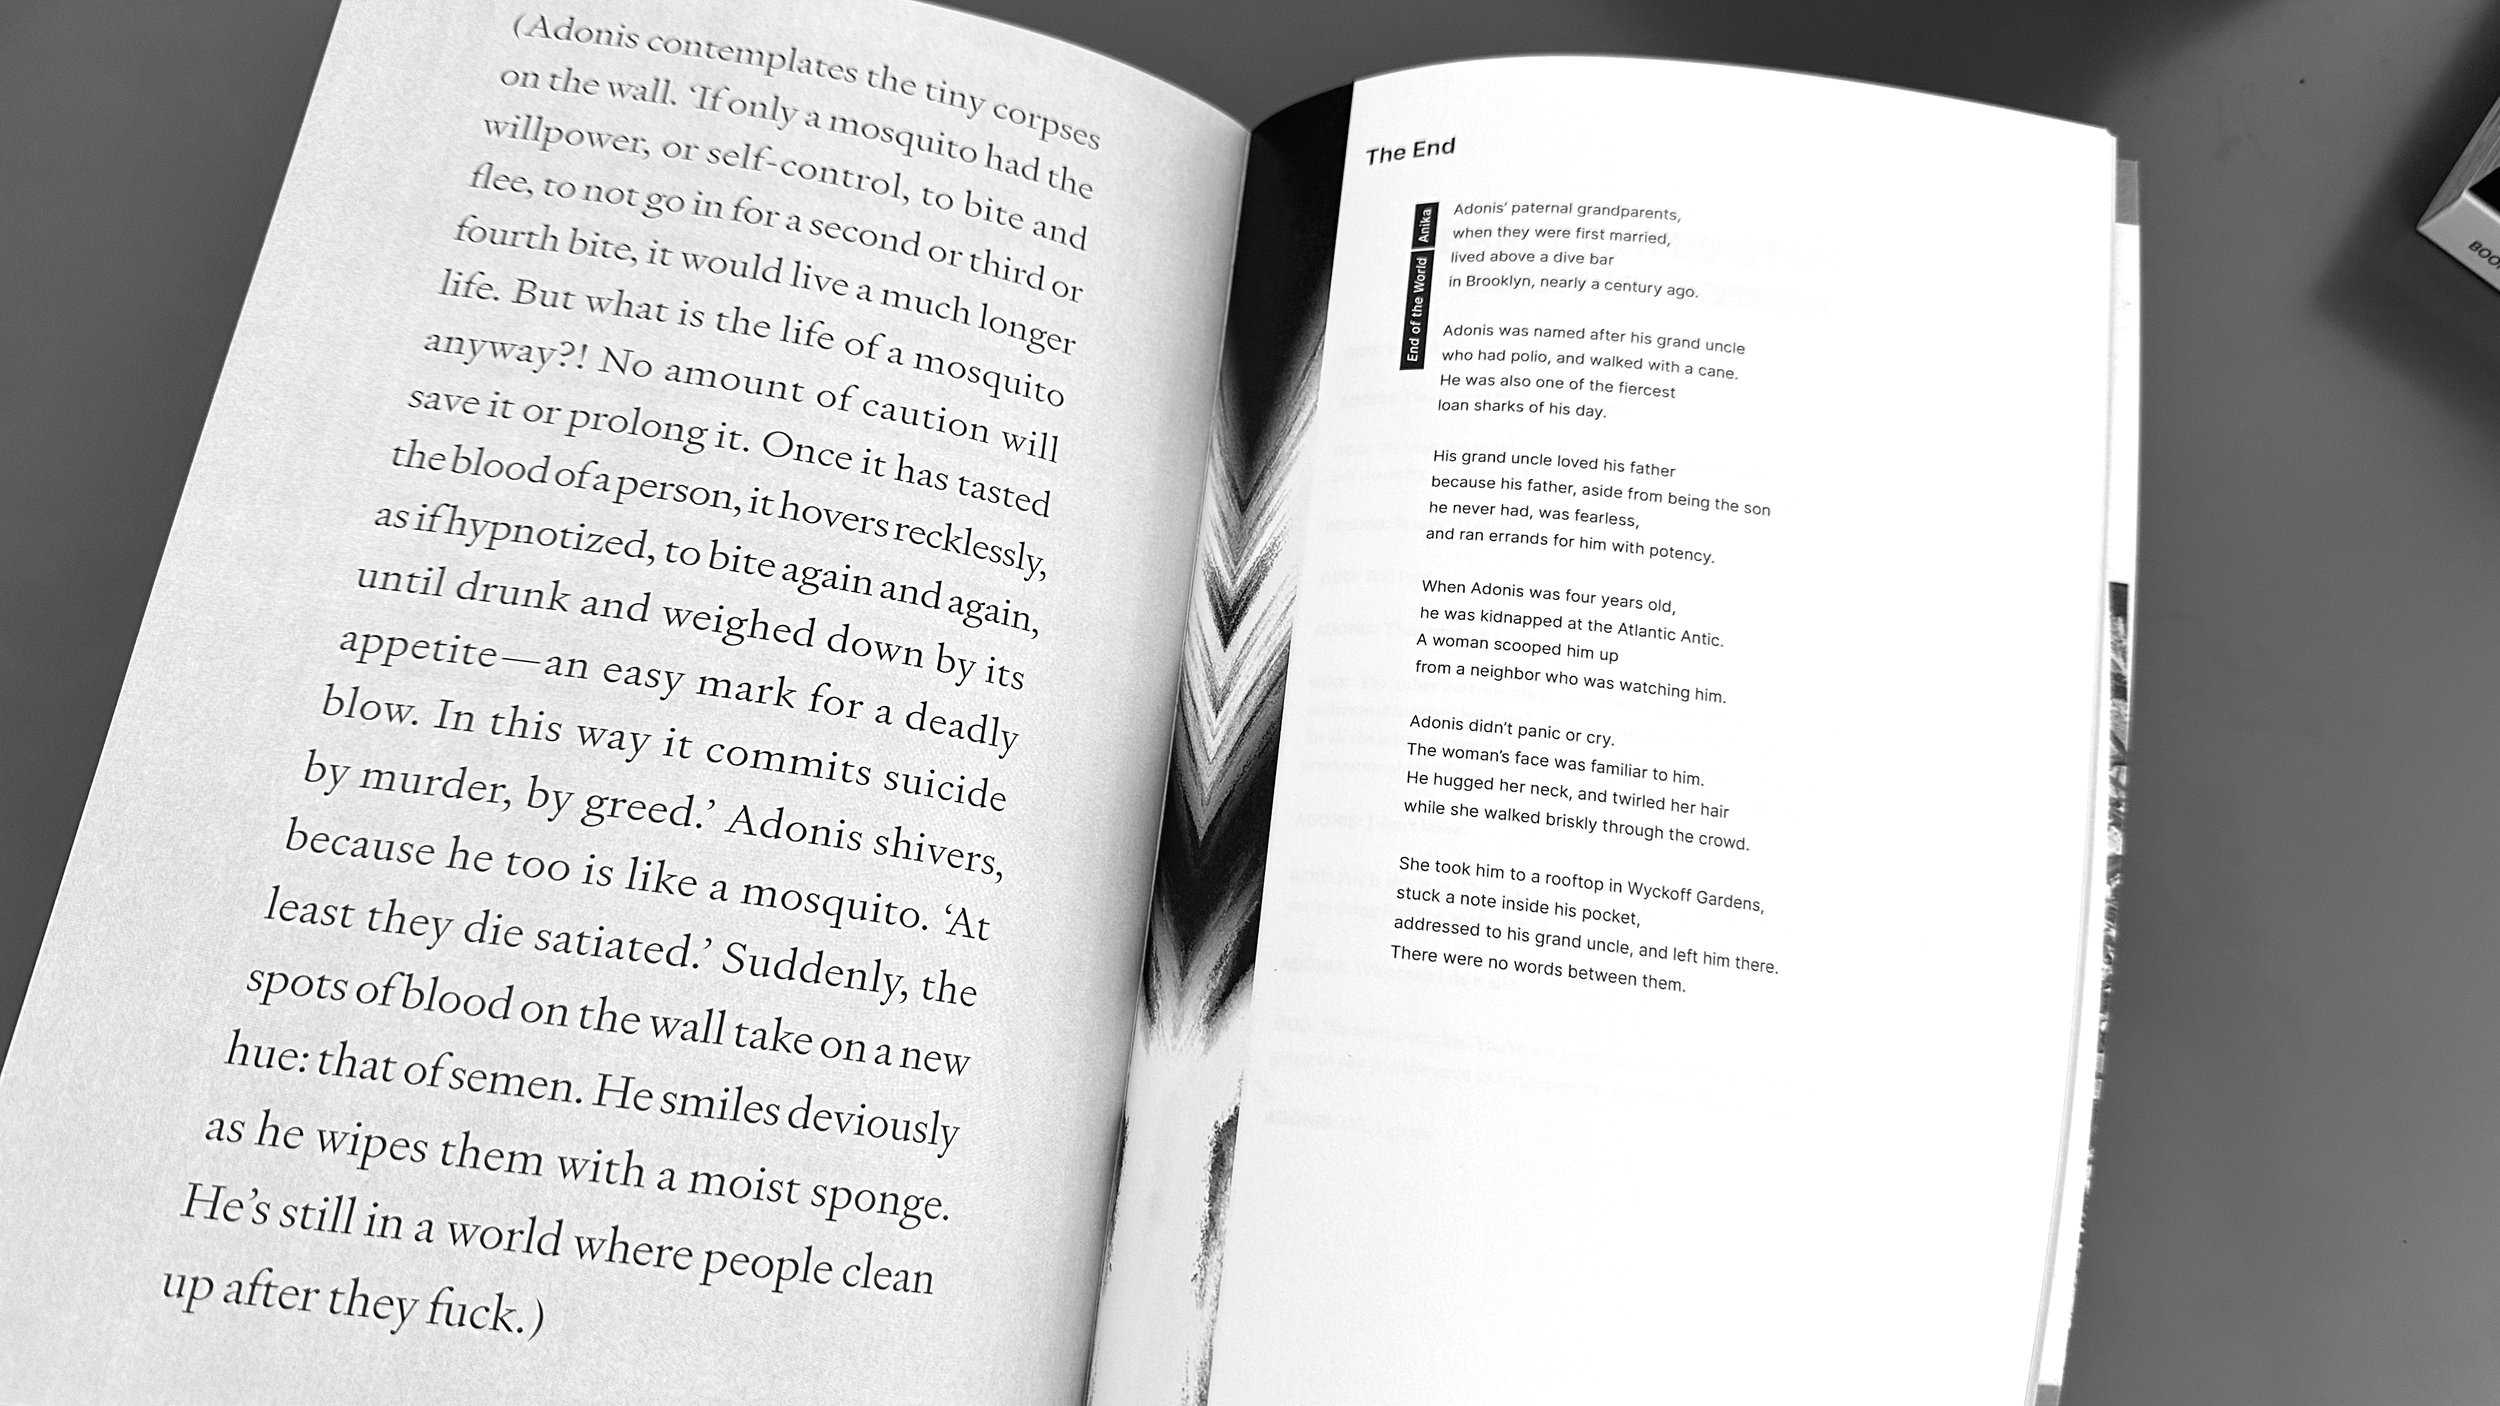 (Adonis contemplates the tiny corpses
on the wall. ‘If only a mosquito had the
willpower, or self-control, to bite and
flee, to not go in for a second or third or
fourth bite, it would live a much longer
life. But what is the life of a mosquito
anyway?! No amount of caution will
save it or prolong it. Once it has tasted
the blood of a person, it hovers recklessly,
as if hypnotized, to bite again and again,
until drunk and weighed down by its
appetite—an easy mark for a deadly
blow. In this way it commits suicide
by murder, by greed.’ Adonis shivers,
because he too is like a mosquito. ‘At
least they die satiated.’ Suddenly, the
spots of blood on the wall take on a new
hue: that of semen. He smiles deviously
as he wipes them with a moist sponge.
He’s still in a world where people clean
up after they fuck.)
The End
Anika
End of the World
Adonis’ paternal grandparents,
when they were first married,
lived above a dive bar
in Brooklyn, nearly a century ago.
Adonis was named after his grand uncle
who had polio, and walked with a cane.
He was also one of the fiercest
loan sharks of his day.
His grand uncle loved his father
because his father, aside from being the son
he never had, was fearless,
and ran errands for him with potency.
When Adonis was four years old,
he was kidnapped at the Atlantic Antic.
A woman scooped him up
from a neighbor who was watching him.
Adonis didn’t panic or cry.
The woman’s face was familiar to him.
He hugged her neck, and twirled her hair
while she walked briskly through the crowd.
She took him to a rooftop in Wyckoff Gardens,
stuck a note inside his pocket,
addressed to his grand uncle, and left him there.
There were no words between them.